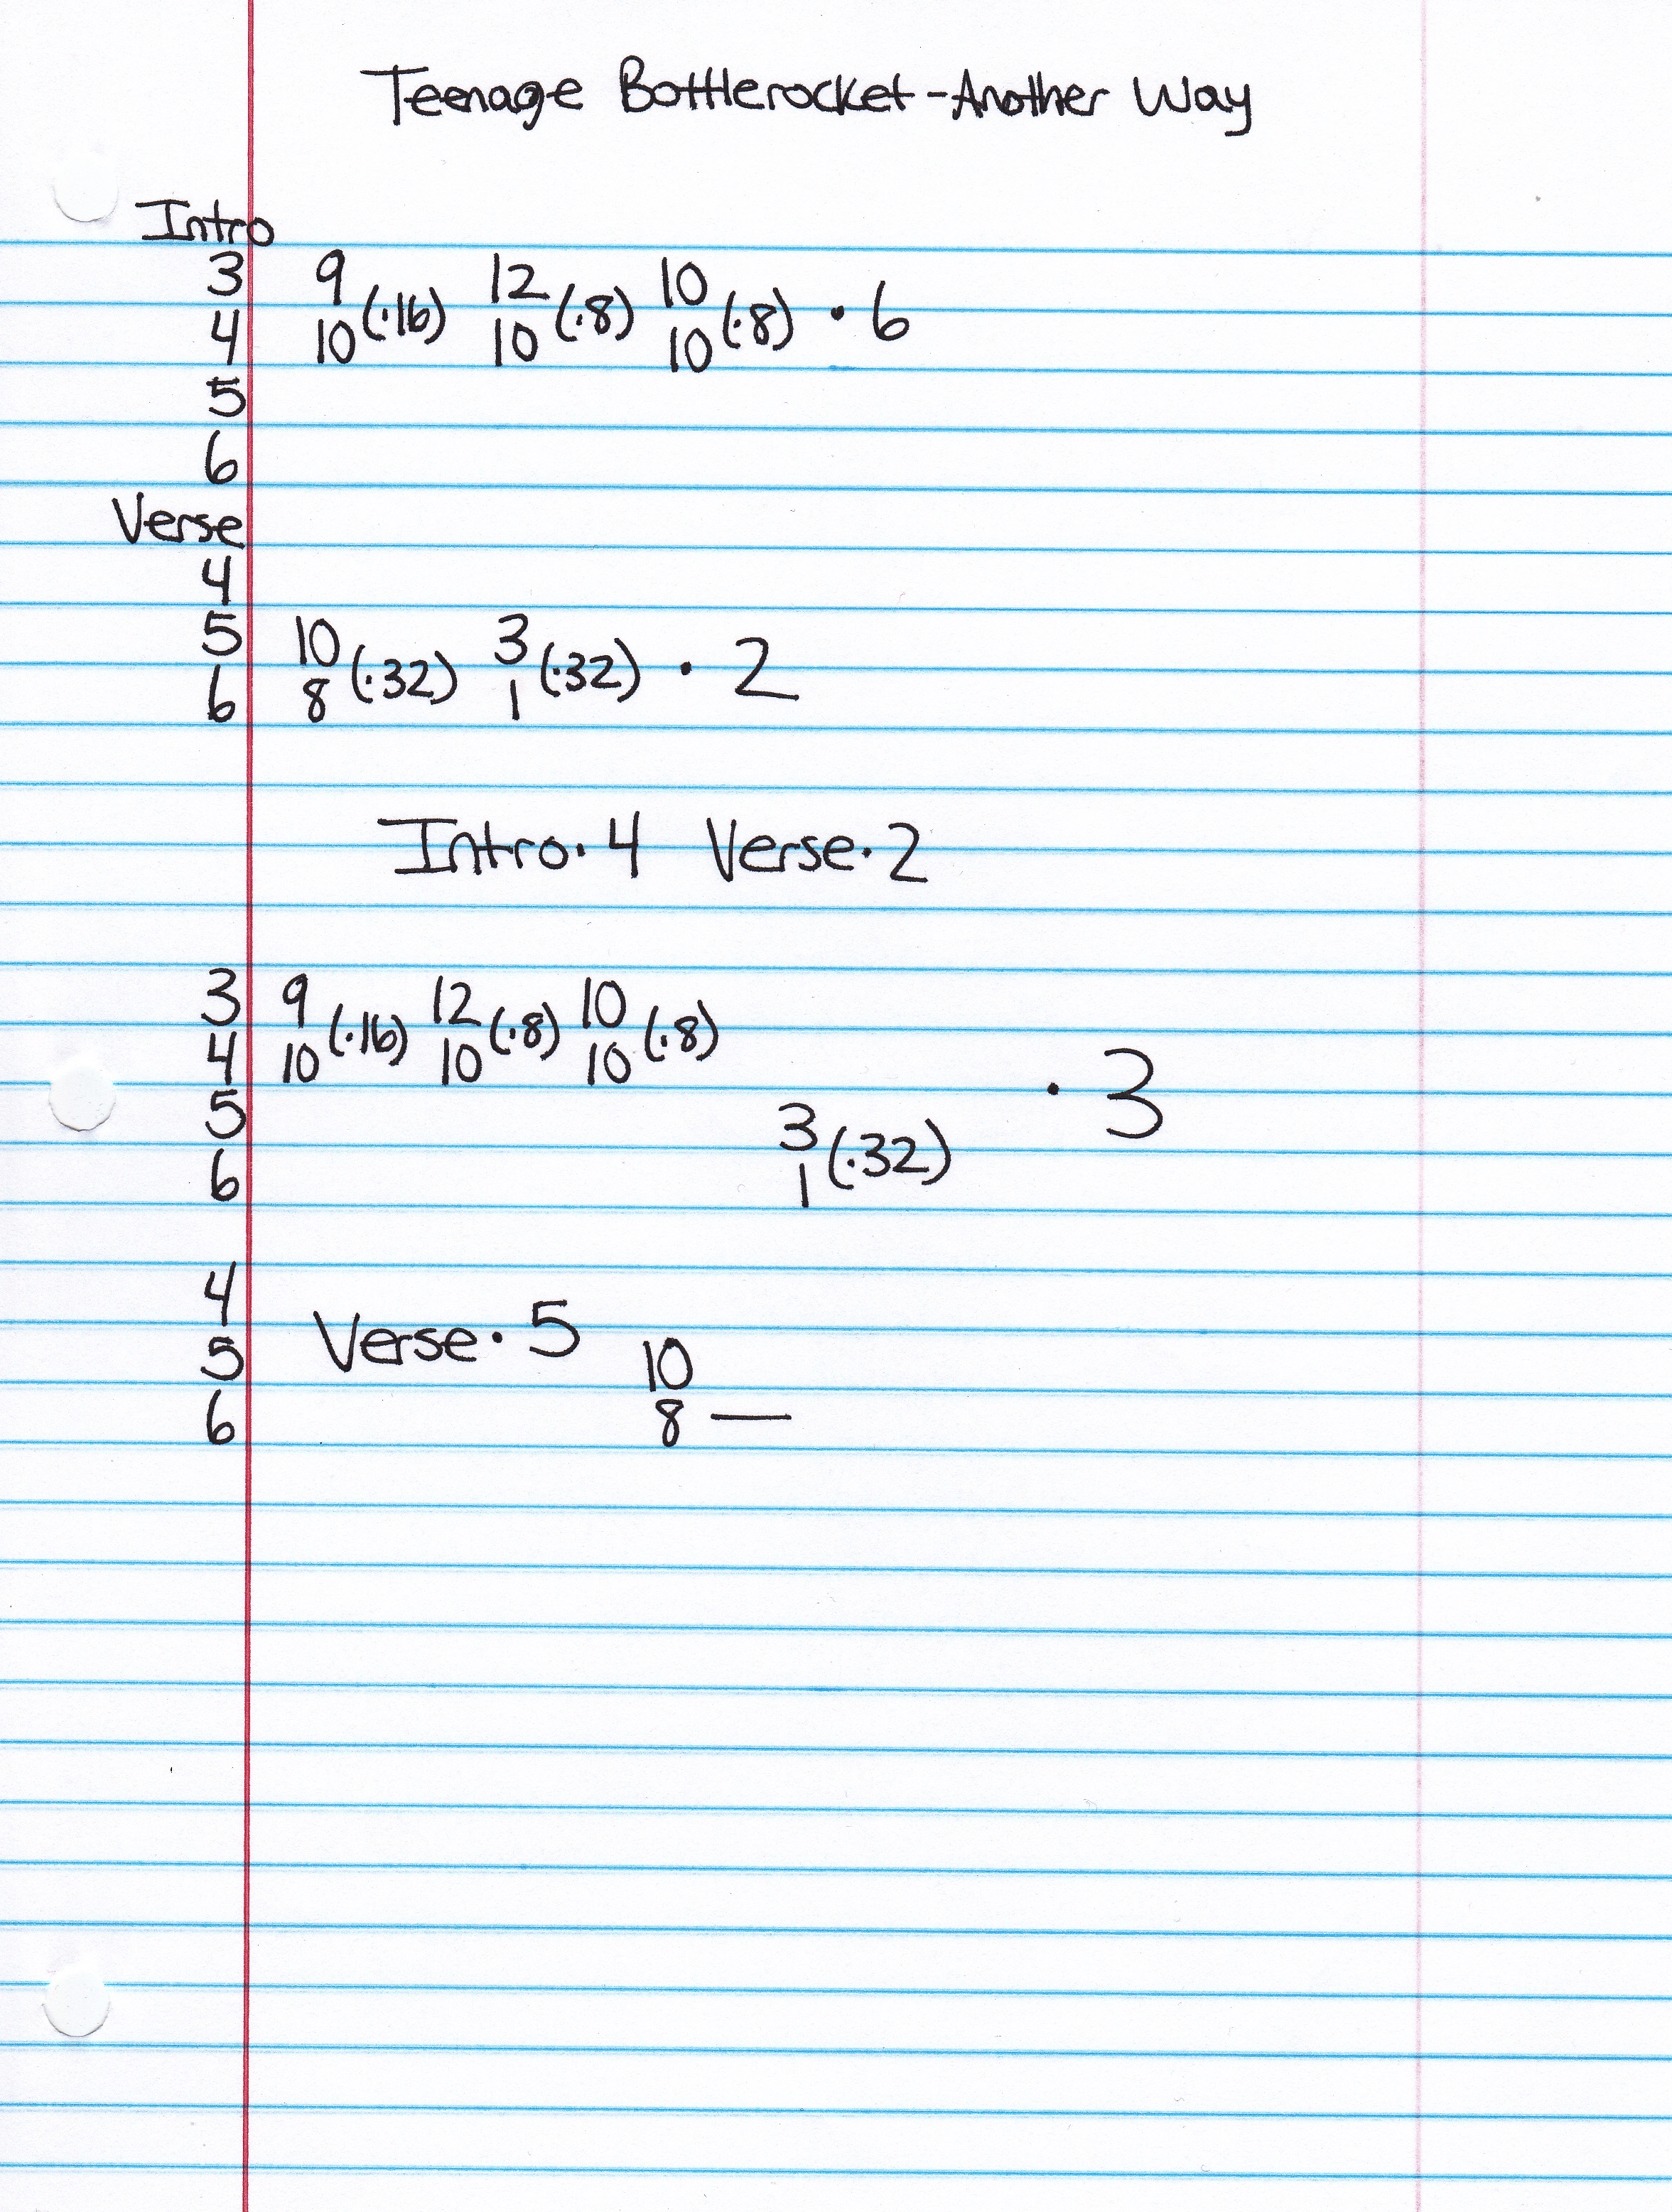 Teenage Bottlerocket - Another Way
Intro
3 9 12 10
4 10 (·16) 10 (·8) 10 (·8) · 6
5
6
Verse
4
5 10 3
6 8 (·32) 1 (·32) · 2
Intro · 4 Verse · 2
3 9 12 10
4 10 (·16) 10 (·8) 10 (·8)
5 3 · 3
6 1 (·32)
4
5 Verse · 5 10
6 8 —